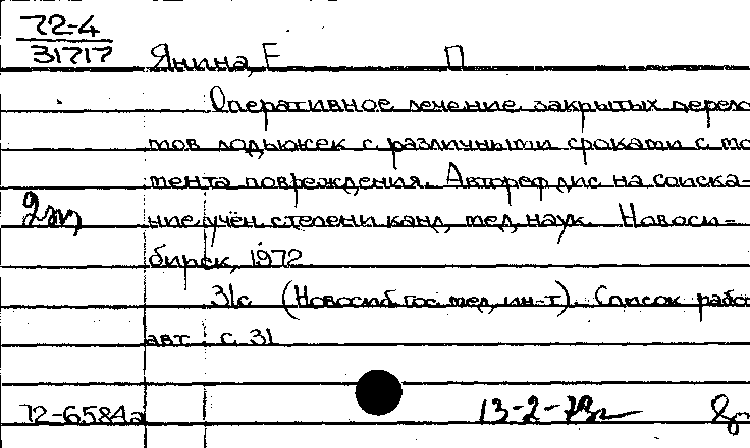 72-4
31717
Янина, Е П
Оперативное лечение закрытых перело
мов лодыжек с различными сроками с мо
мента повреждения. Автореф дис на соиска-
2м
ние учён. степени канд, мед, наук. Новоси-
бирск, 1972
31с (Новосиб гос мед, ин-т). Список рабо
авт с 31
72-6584а
13-2-73г